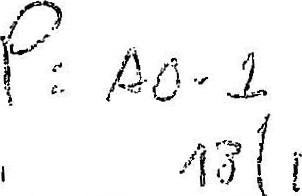 P: AO-1
13